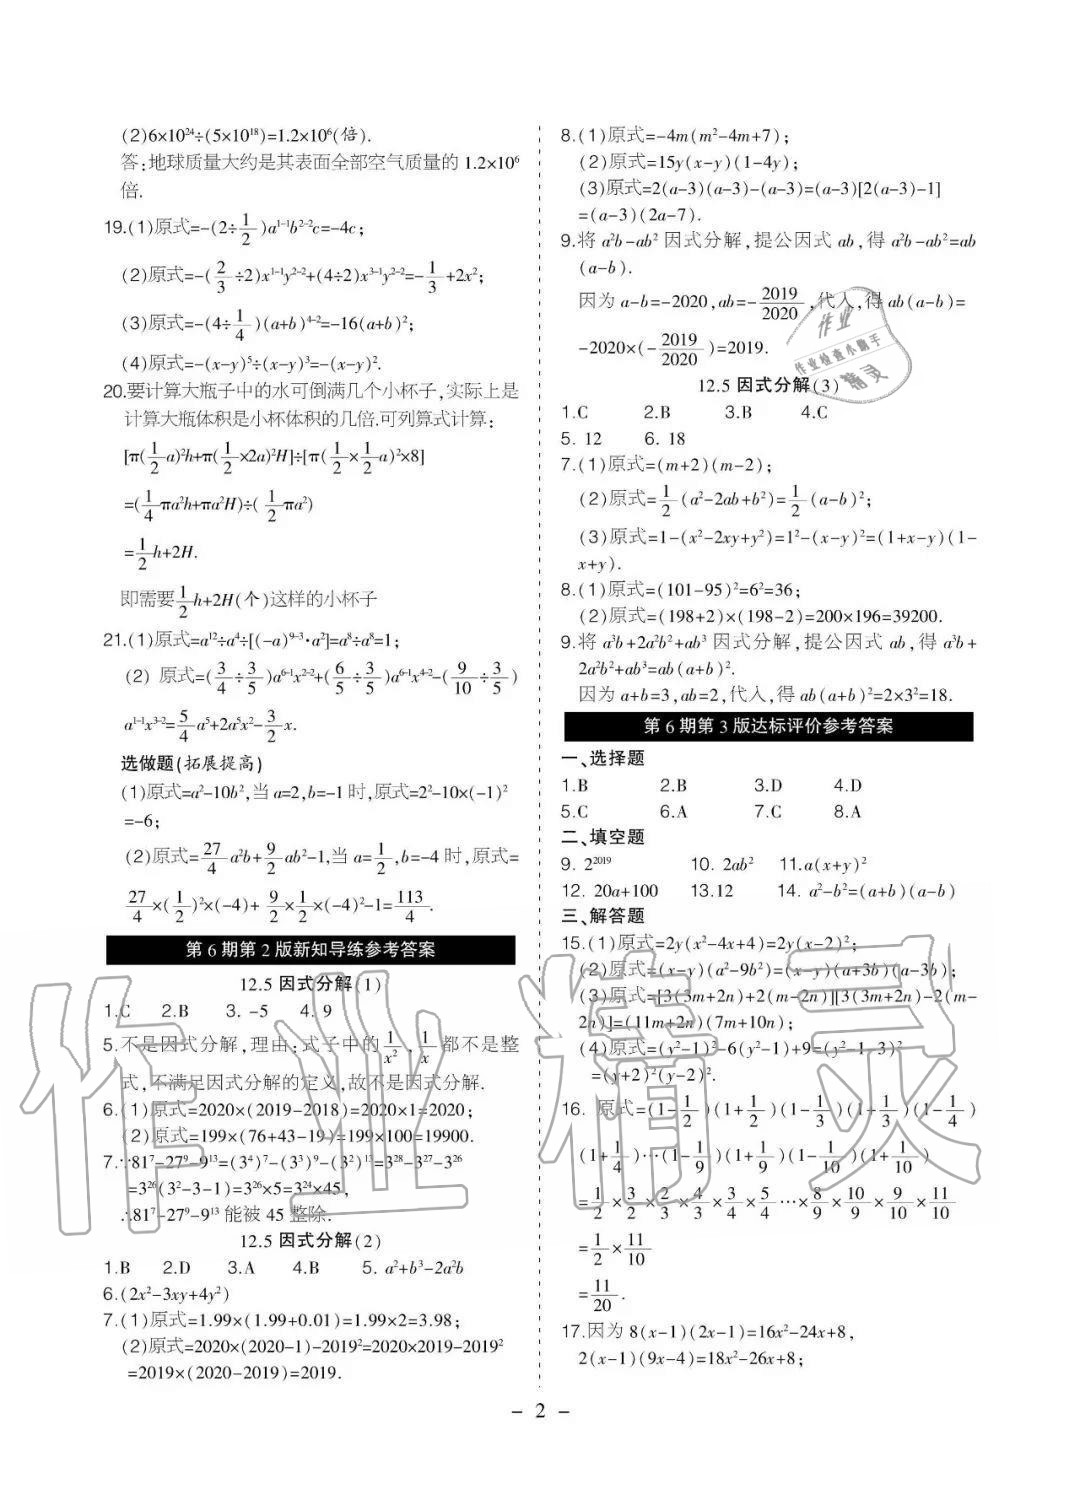 (2)6×10²⁴÷(5×10¹⁸)=1.2×10⁶(倍).
答:地球质量大约是其表面全部空气质量的 1.2×10⁶
倍.
19.(1)原式=-(2÷1/2)a¹⁻¹b²⁻²c=-4c;
(2)原式=-(2/3÷2)x¹⁻¹y²⁻²+(4÷2)x³⁻¹y²⁻²=-1/3+2x²;
(3)原式=-(4÷1/4)(a+b)⁴⁻²=-16(a+b)²;
(4)原式=-(x-y)⁵÷(x-y)³=-(x-y)².
20.要计算大瓶子中的水可倒满几个小杯子,实际上是
计算大瓶体积是小杯体积的几倍.可列算式计算:
[π(1/2a)²h+π(1/2×2a)²H]÷[π(1/2×1/2a)²×8]
=(1/4πa²h+πa²H)÷(1/2πa²)
=1/2h+2H.
即需要1/2h+2H(个)这样的小杯子
21.(1)原式=a¹²÷a⁴÷[(-a)⁹⁻³·a²]=a⁸÷a⁸=1;
(2) 原式=(3/4÷3/5)a⁶⁻¹x²⁻²+(6/5÷3/5)a⁶⁻¹x⁴⁻²-(9/10÷3/5)
a¹⁻¹x³⁻²=5/4a⁵+2a⁵x²-3/2x.
选做题(拓展提高)
(1)原式=a²-10b²,当a=2,b=-1时,原式=2²-10×(-1)²
=-6;
(2)原式=27/4a²b+9/2ab²-1,当a=1/2,b=-4时,原式=
27/4×(1/2)²×(-4)+9/2×1/2×(-4)²-1=113/4.
第6期第2版新知导练参考答案
12.5 因式分解(1)
1.C 2.B 3. -5 4. 9
5.不是因式分解,理由:式子中的1/x²,1/x都不是整
式,不满足因式分解的定义,故不是因式分解.
6.(1)原式=2020×(2019-2018)=2020×1=2020;
(2)原式=199×(76+43-19)=199×100=19900.
7.∵81⁷-27⁹-9¹³=(3⁴)⁷-(3³)⁹-(3²)¹³=3²⁸-3²⁷-3²⁶
=3²⁶(3²-3-1)=3²⁶×5=3²⁴×45,
∴81⁷-27⁹-9¹³能被 45 整除.
12.5 因式分解(2)
1.B 2.D 3.A 4.B 5. a²+b³-2a²b
6.(2x²-3xy+4y²)
7.(1)原式=1.99×(1.99+0.01)=1.99×2=3.98;
(2)原式=2020×(2020-1)-2019²=2020×2019-2019²
=2019×(2020-2019)=2019.
8.(1)原式=-4m(m²-4m+7);
(2)原式=15y(x-y)(1-4y);
(3)原式=2(a-3)(a-3)-(a-3)=(a-3)[2(a-3)-1]
=(a-3)(2a-7).
9.将 a²b-ab² 因式分解,提公因式 ab,得 a²b-ab²=ab
(a-b).
因为a-b=-2020,ab=-2019/2020,代入,得ab(a-b)=
-2020×(-2019/2020)=2019.
12.5 因式分解(3)
1.C 2.B 3.B 4.C
5. 12 6. 18
7.(1)原式=(m+2)(m-2);
(2)原式=1/2(a²-2ab+b²)=1/2(a-b)²;
(3)原式=1-(x²-2xy+y²)=1²-(x-y)²=(1+x-y)(1-
x+y).
8.(1)原式=(101-95)²=6²=36;
(2)原式=(198+2)×(198-2)=200×196=39200.
9.将 a³b+2a²b²+ab³ 因式分解,提公因式 ab,得 a³b+
2a²b²+ab³=ab(a+b)².
因为a+b=3,ab=2,代入,得ab(a+b)²=2×3²=18.
第6期第3版达标评价参考答案
一、选择题
1.B 2.B 3.D 4.D
5.C 6.A 7.C 8.A
二、填空题
9. 2²⁰¹⁹ 10. 2ab² 11.a(x+y)²
12. 20a+100 13.12 14. a²-b²=(a+b)(a-b)
三、解答题
15.(1)原式=2y(x²-4x+4)=2y(x-2)²;
(2)原式=(x-y)(a²-9b²)=(x-y)(a+3b)(a-3b);
(3)原式=[3(3m+2n)+2(m-2n)][3(3m+2n)-2(m-
2n)]=(11m+2n)(7m+10n);
(4)原式=(y²-1)²-6(y²-1)+9=(y²-1-3)²
=(y+2)²(y-2)².
16. 原式=(1-1/2)(1+1/2)(1-1/3)(1+1/3)(1-1/4)
(1+1/4)…(1-1/9)(1+1/9)(1-1/10)(1+1/10)
=1/2×3/2×2/3×4/3×3/4×5/4…×8/9×10/9×9/10×11/10
=1/2×11/10
=11/20.
17.因为8(x-1)(2x-1)=16x²-24x+8,
2(x-1)(9x-4)=18x²-26x+8;
- 2 -
作业
作业检查小助手
精灵
作业精灵